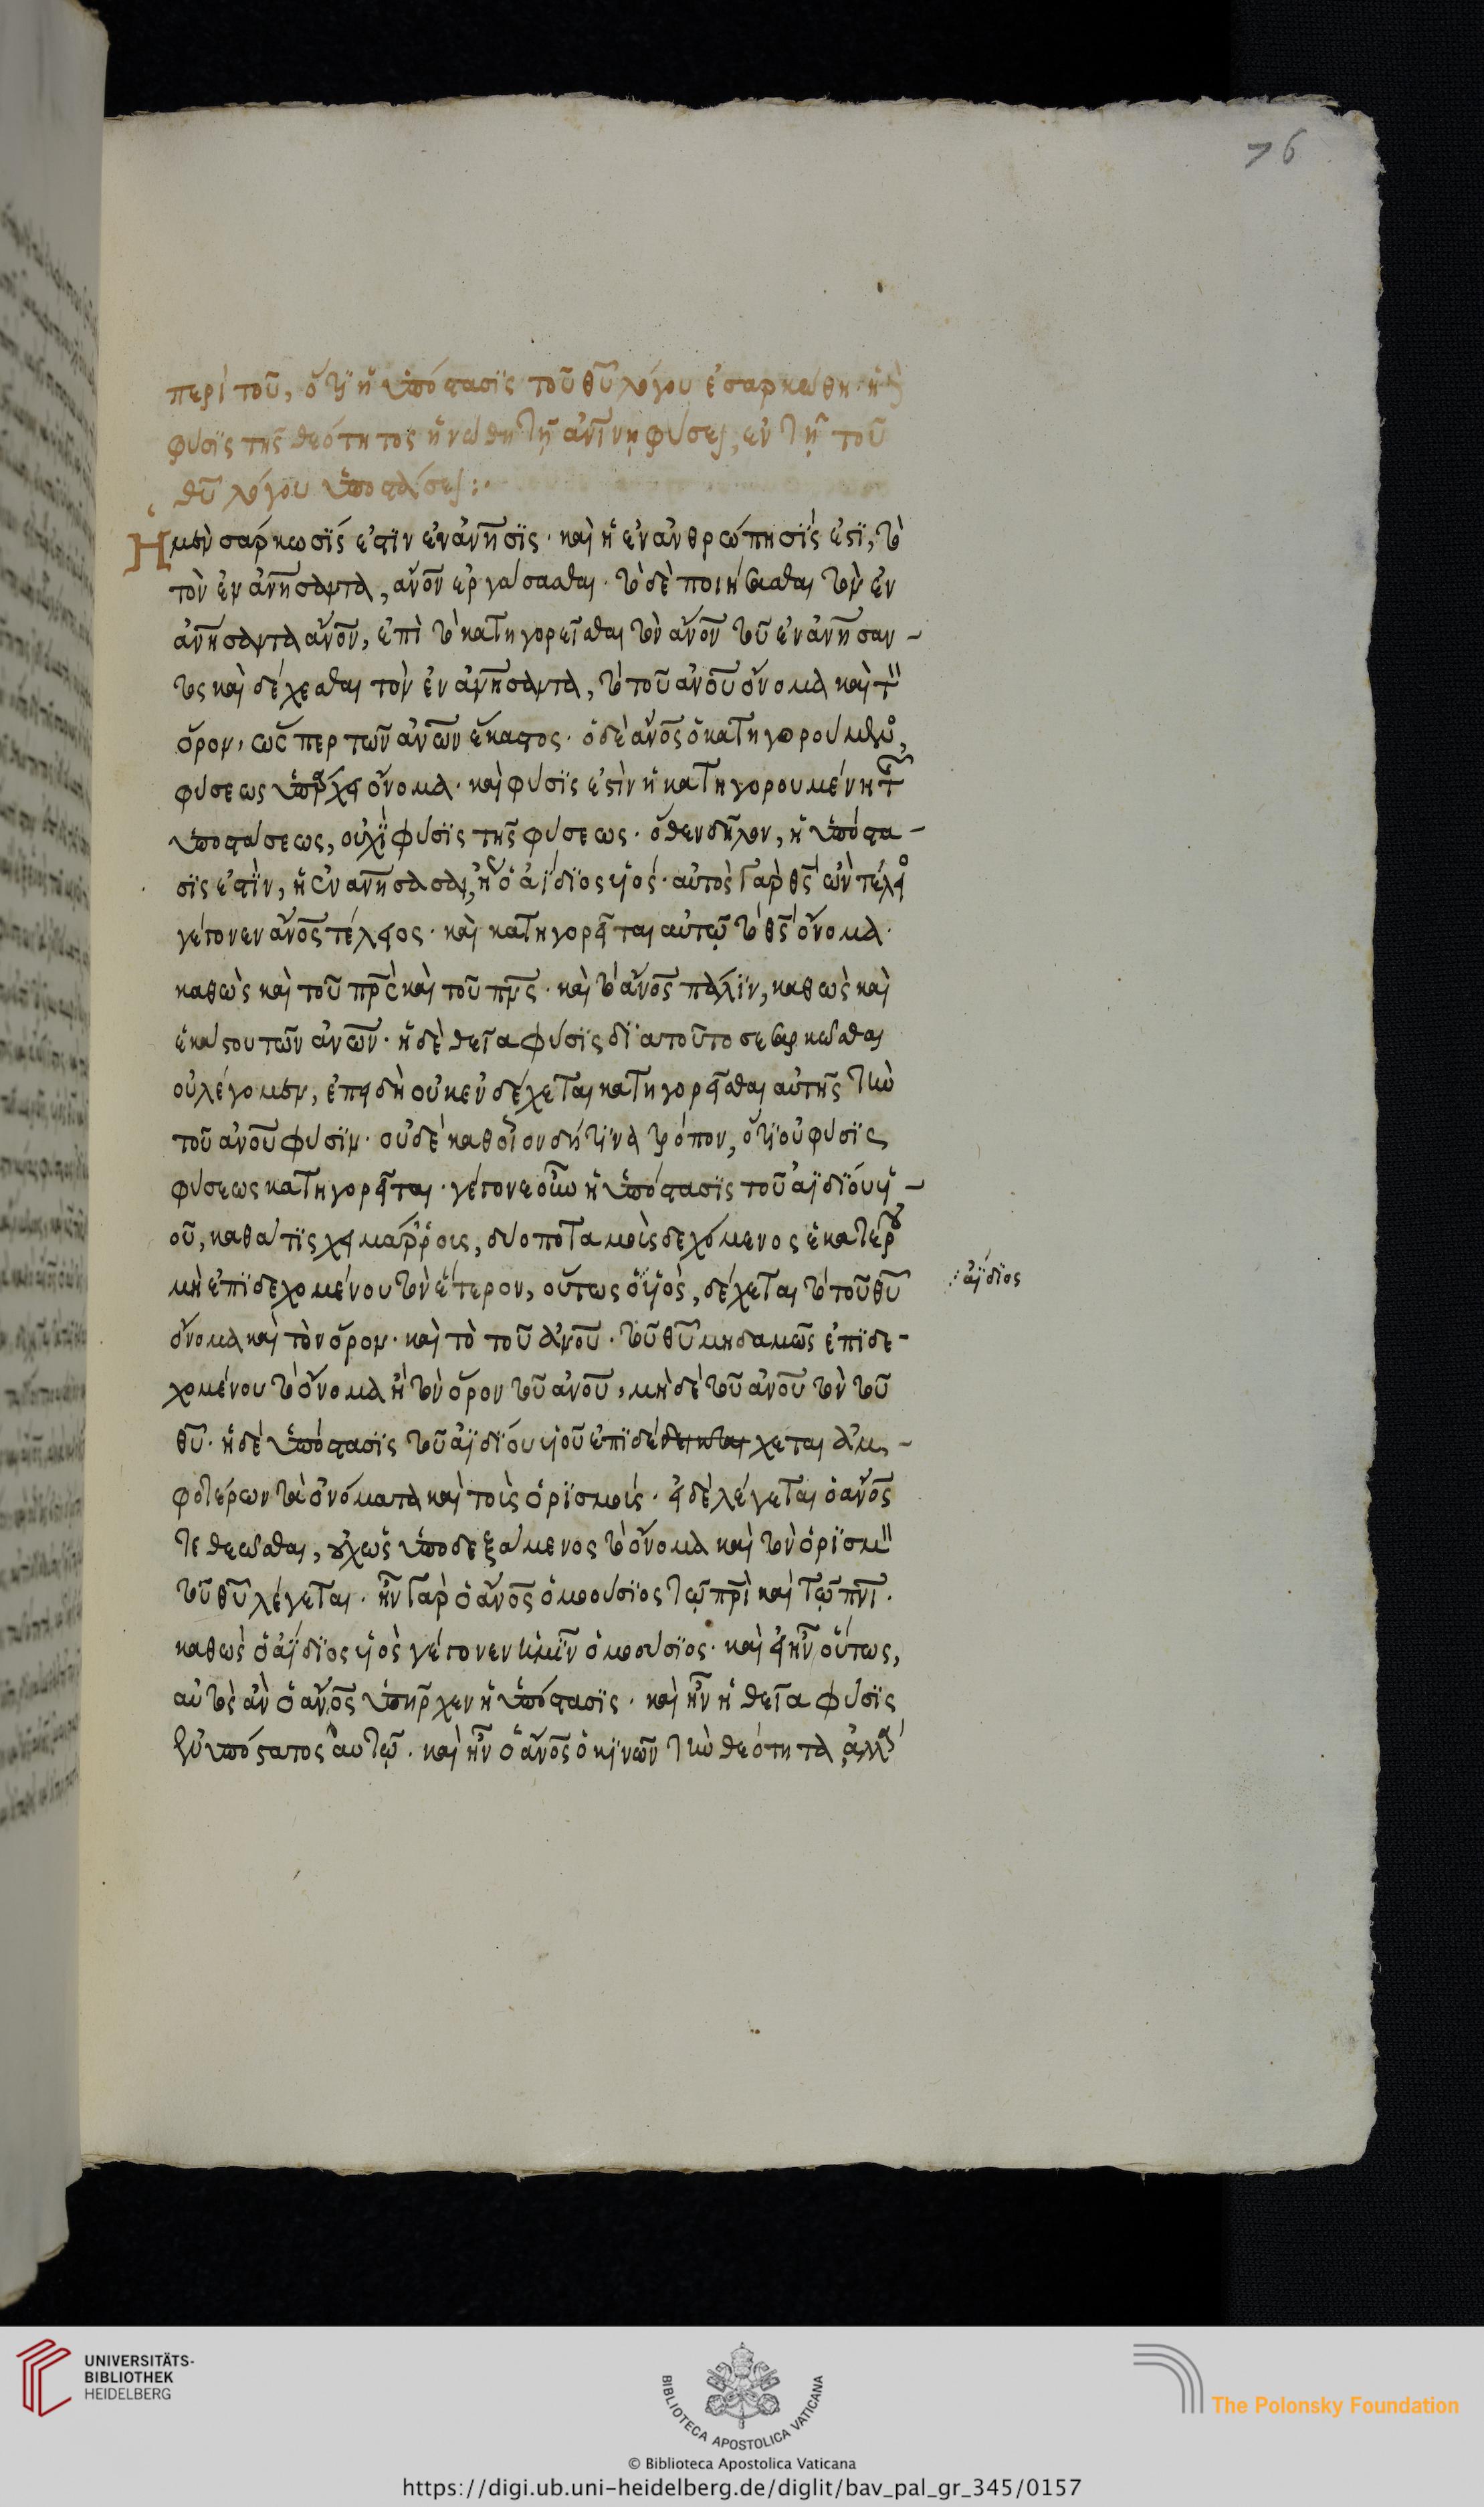 76
περὶ τοῦ, ὅτι ἡ ὑπόστασις τοῦ θυ λόγου ἐσαρκώθη· ἡ δὲ
φύσις τῆς θεότητος ἡνώθη τῇ ἀνίνῃ φύσει, ἐν τῇ τοῦ
θυ λόγου ὑποστάσει:·
Ἡ μὲν σάρκωσίς ἐστιν ἐνάνησις· καὶ ἡ ἐνανθρώπησίς ἐστι, τὸ
τὸν ἐνανησαντα, ανον ἐργάσασθαι· τὸ δὲ ποιήσασθαι τὸν ἐν
ανησαντα ανον, ἐπὶ τὸ κατηγορεῖσθαι τὸν ανον τοῦ ἐνανησαν-
τος καὶ δέχεσθαι τὸν ἐνανησαντα, τὸ τοῦ ανου ὄνομα καὶ τὸν
ὅρον, ὥσπερ τῶν ανων ἕκαστος· ὁ δὲ ανος ὁ κατηγορούμενος,
φύσεως ὑπάρχει ὄνομα· καὶ φύσις ἐστὶν ἡ κατηγορουμένη τῆς
ὑποστάσεως, οὐχὶ φύσις τῆς φύσεως· ὅθεν δῆλον, ἡ ὑπόστα-
σις ἐστὶν, ἡ ἐνανησασα, ἤγουν ὁ ἀΐδιος υἱός· αὐτὸς γὰρ θς ὢν τέλειος
γέγονεν ανος τέλειος· καὶ κατηγορεῖται αὐτῷ τὸ θς ὄνομα·
καθὼς καὶ τοῦ πρς καὶ τοῦ πνς· καὶ τὸ ανος πάλιν, καθὼς καὶ
ἑκάστου τῶν ανων· ἡ δὲ θεῖα φύσις διατοῦτο σεσαρκῶσθαι
οὐ λέγομεν, ἐπειδὴ οὐκ ἐνδέχεται κατηγορεῖσθαι αὐτῆς τὴν
τοῦ ανου φύσιν· οὐδὲ καθ' οἷον δή τινα τρόπον, ὅτι οὐ φύσις
φύσεως κατηγορεῖται· γέγονε οὖν ἡ ὑπόστασις τοῦ ἀϊδίου υἱ-
οῦ, καθά τις χειμάρροις, δύο ποταμοὺς δεχόμενος ἑκατέρου
μὴ ἐπιδεχομένου τὸν ἕτερον, οὕτως ὁ υἱὸς, δέχεται τὸ τοῦ θυ
ἀΐδιος
ὄνομα καὶ τὸν ὅρον· καὶ τὸ τοῦ ανου· τοῦ θυ μηδαμῶς ἐπιδε-
χομένου τὸ ὄνομα ἢ τὸν ὅρον τοῦ ανου, μὴ δὲ τοῦ ανου τὸν τοῦ
θυ· ἡ δὲ ὑπόστασις τοῦ ἀϊδίου υἱοῦ ἐπιδέχεται ἀμ-
φοτέρων τὰ ὀνόματα καὶ τοὺς ὁρισμούς· εἰ δὲ λέγεται ὁ ανος
τεθεῶσθαι, οὐχ ὡς ὑποδεξάμενος τὸ ὄνομα καὶ τὸν ὁρισμὸν
τοῦ θυ λέγεται· ἦν γὰρ ὁ ανος ὁμοούσιος τῷ πρὶ καὶ τῷ πνι·
καθὼς ὁ ἀΐδιος υἱὸς γέγονεν ἡμῖν ὁμοούσιος· καὶ εἰ ἦν οὕτως,
αὐτὸς ἂν ὁ ανος ὑπῆρχεν ἡ ὑπόστασις· καὶ ἦν ἡ θεῖα φύσις
ἐνυπόστατος αὐτῷ· καὶ ἦν ὁ ανος ὁ κινῶν τὴν θεότητα, ἀλλ'
UNIVERSITÄTS-
BIBLIOTHEK
HEIDELBERG
BIBLIOTECA APOSTOLICA VATICANA
The Polonsky Foundation
© Biblioteca Apostolica Vaticana
https://digi.ub.uni-heidelberg.de/diglit/bav_pal_gr_345/0157